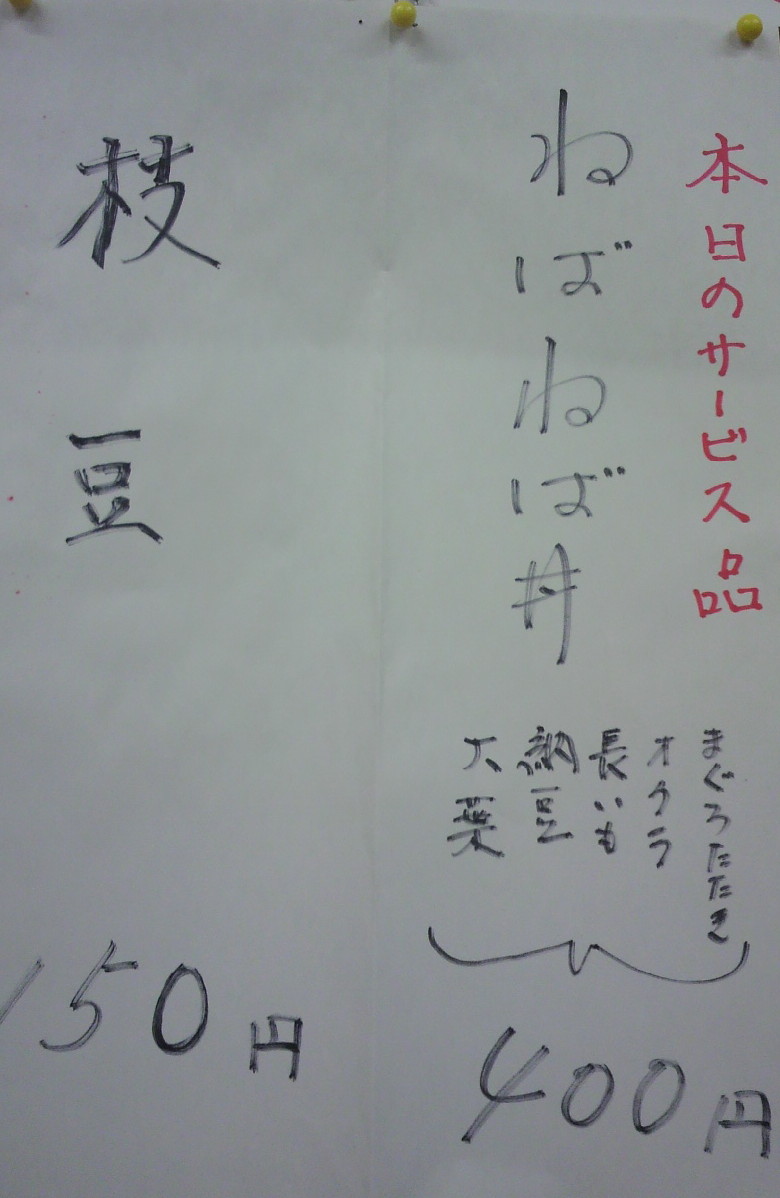 本日のサービス品
ねばねば丼
まぐろたたき
オクラ
長いも
納豆
大葉
400円
枝豆
150円